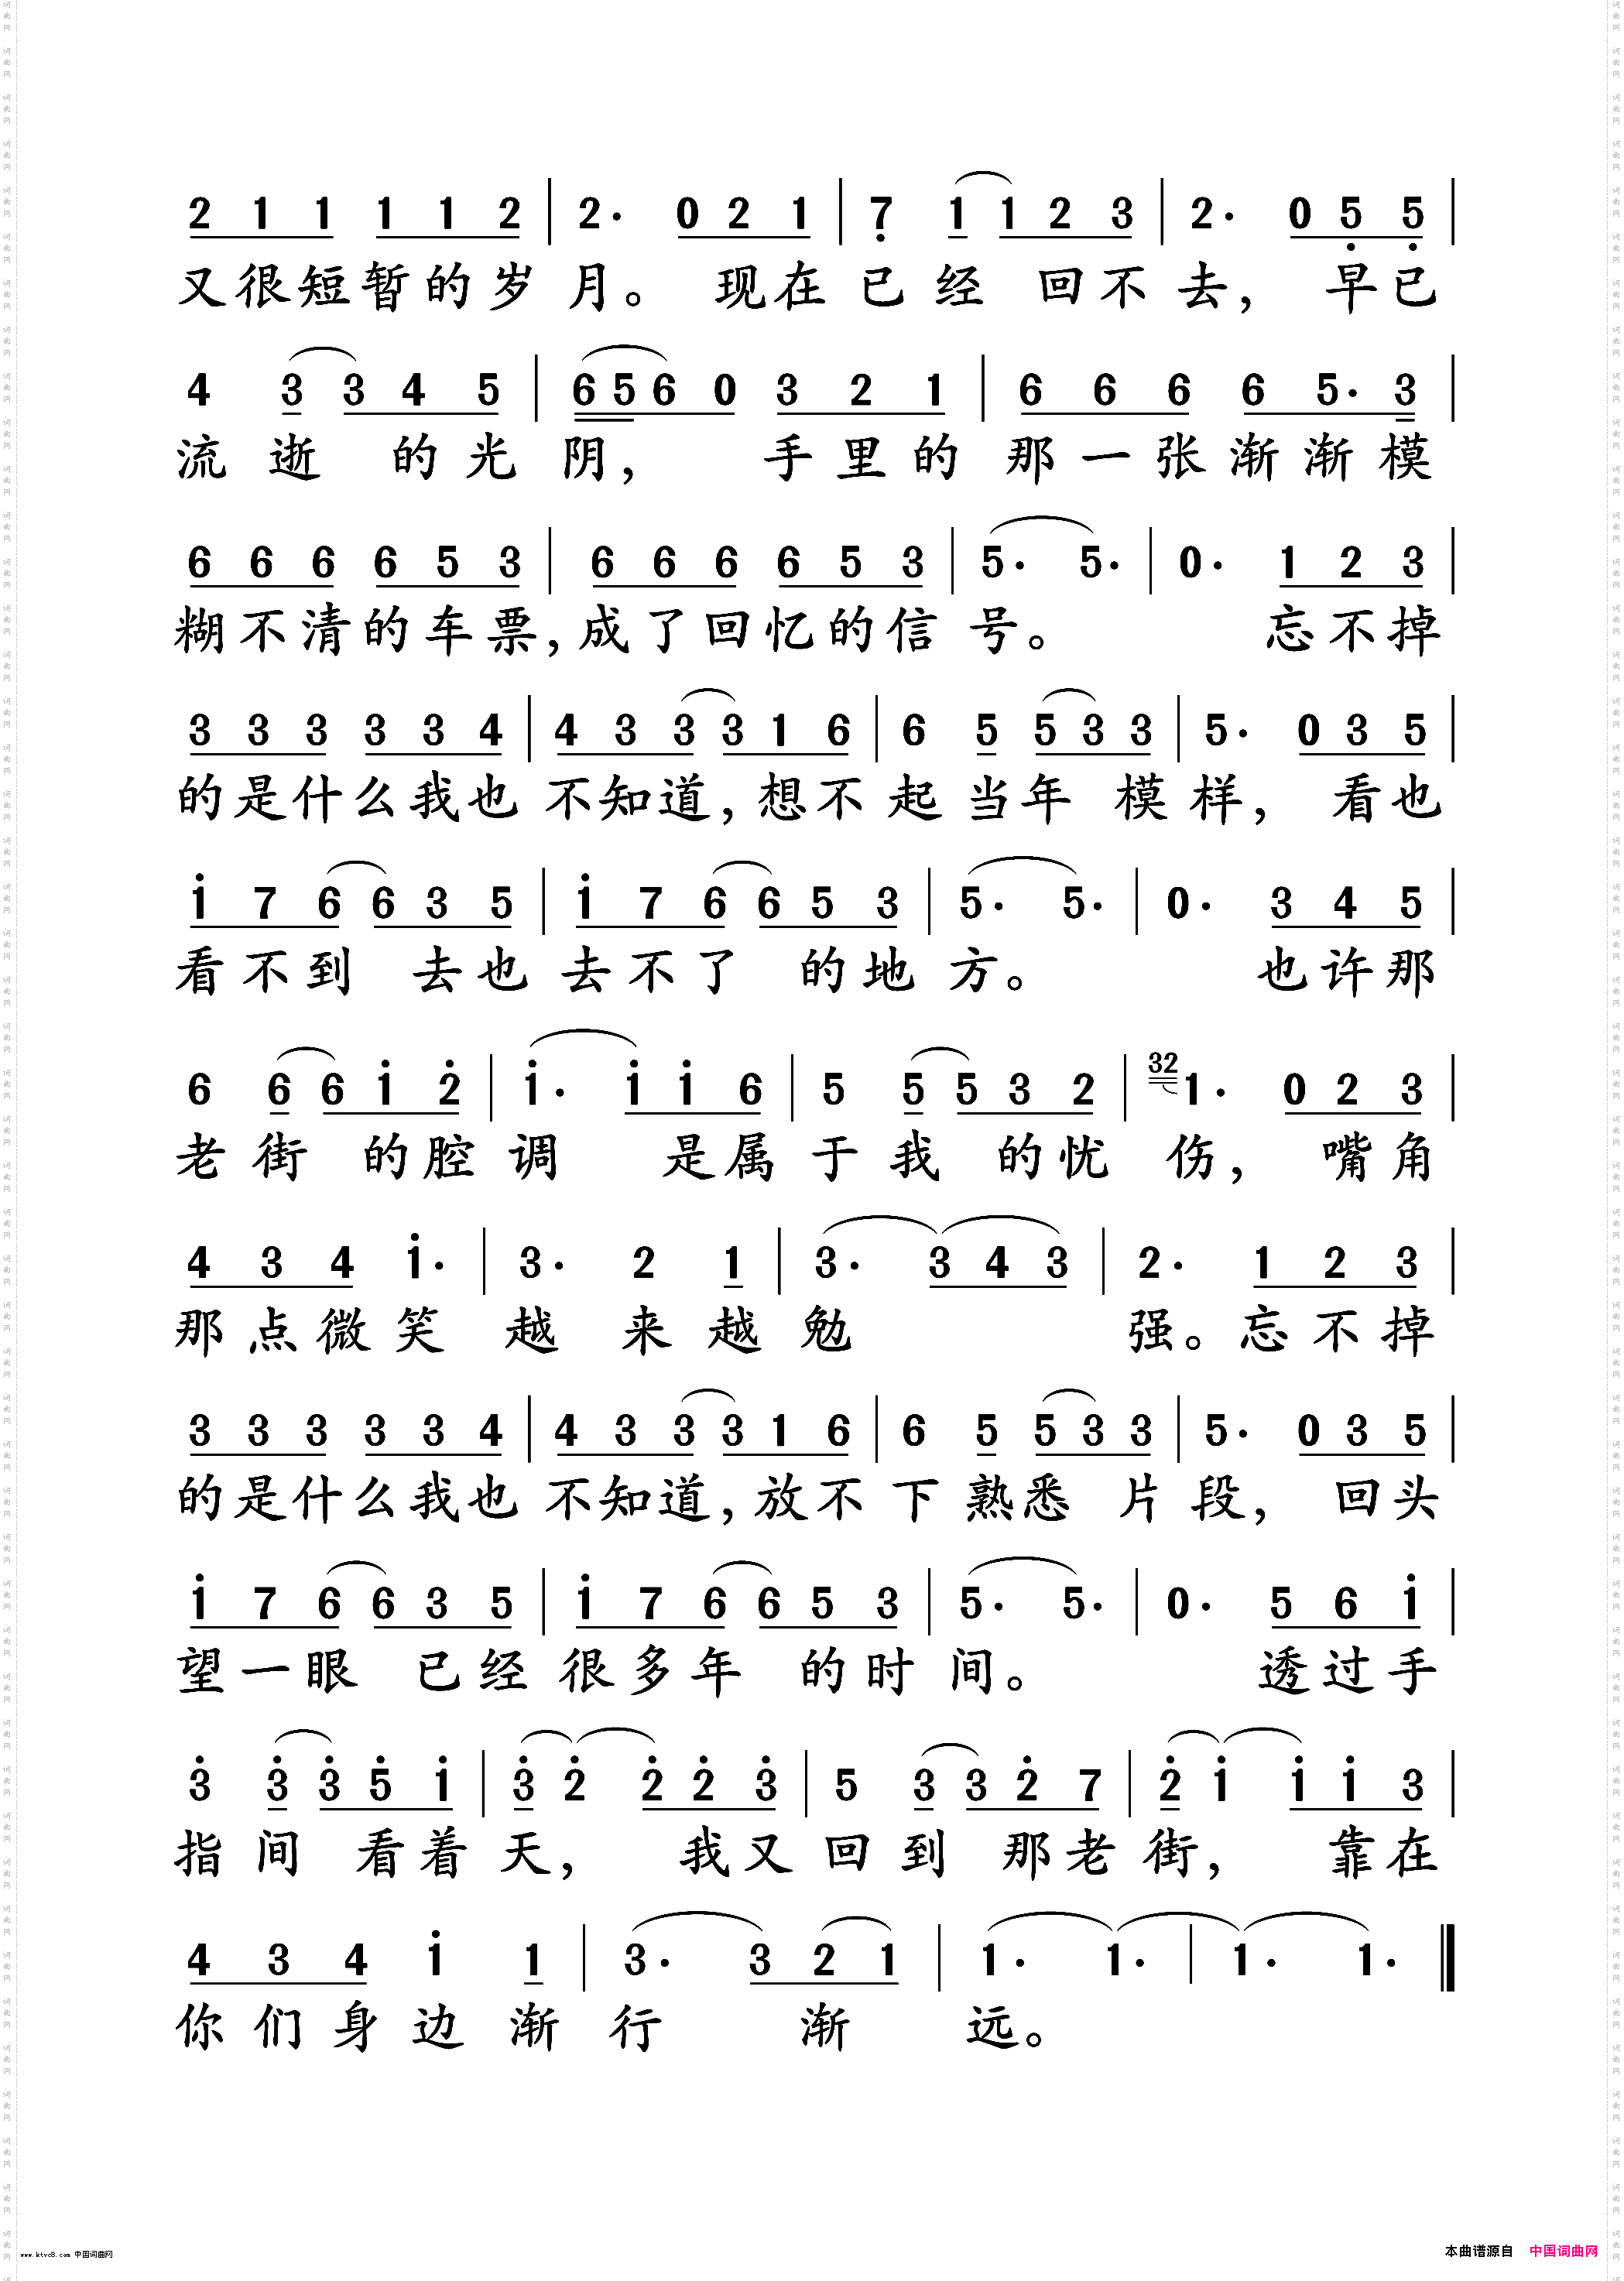 2 1 1 1 1 2 | 2· 0 2 1 | 7̣ 1 1 2 3 | 2· 0 5̣ 5̣ |
又很短暂的岁月。 现在已经回不去, 早已
4 3 3 4 5 | 6 5 6 0 3 2 1 | 6 6 6 6 5· 3 |
流逝 的光阴, 手里的那一张渐渐模
6 6 6 6 5 3 | 6 6 6 6 5 3 | 5· 5· | 0· 1 2 3 |
糊不清的车票,成了回忆的信号。 忘不掉
3 3 3 3 3 4 | 4 3 3 3 1 6 | 6 5 5 3 3 | 5· 0 3 5 |
的是什么我也不知道,想不起当年 模样, 看也
1̇ 7 6 6 3 5 | 1̇ 7 6 6 5 3 | 5· 5· | 0· 3 4 5 |
看不到 去也去不了 的地方。 也许那
6 6 6 1̇ 2̇ | 1̇· 1̇ 1̇ 6 | 5 5 5 3 2 | 32 1· 0 2 3 |
老街 的腔调 是属于我 的忧伤, 嘴角
4 3 4 1̇· | 3· 2 1 | 3· 3 4 3 | 2· 1 2 3 |
那点微笑越来越勉 强。忘不掉
3 3 3 3 3 4 | 4 3 3 3 1 6 | 6 5 5 3 3 | 5· 0 3 5 |
的是什么我也不知道,放不下熟悉 片段, 回头
1̇ 7 6 6 3 5 | 1̇ 7 6 6 5 3 | 5· 5· | 0· 5 6 1̇ |
望一眼 已经很多年 的时间。 透过手
3̇ 3̇ 3̇ 5̇ 1̇ | 3̇ 2̇ 2̇ 2̇ 3̇ | 5 3 3 2̇ 7 | 2̇ 1̇ 1̇ 1̇ 3 |
指间 看着天, 我又回到 那老街, 靠在
4 3 4 1̇ 1 | 3· 3 2 1 | 1· 1· | 1· 1· ‖
你们身边渐行 渐 远。
www.ktvc8.com 中国词曲网
本曲谱源自 中国词曲网